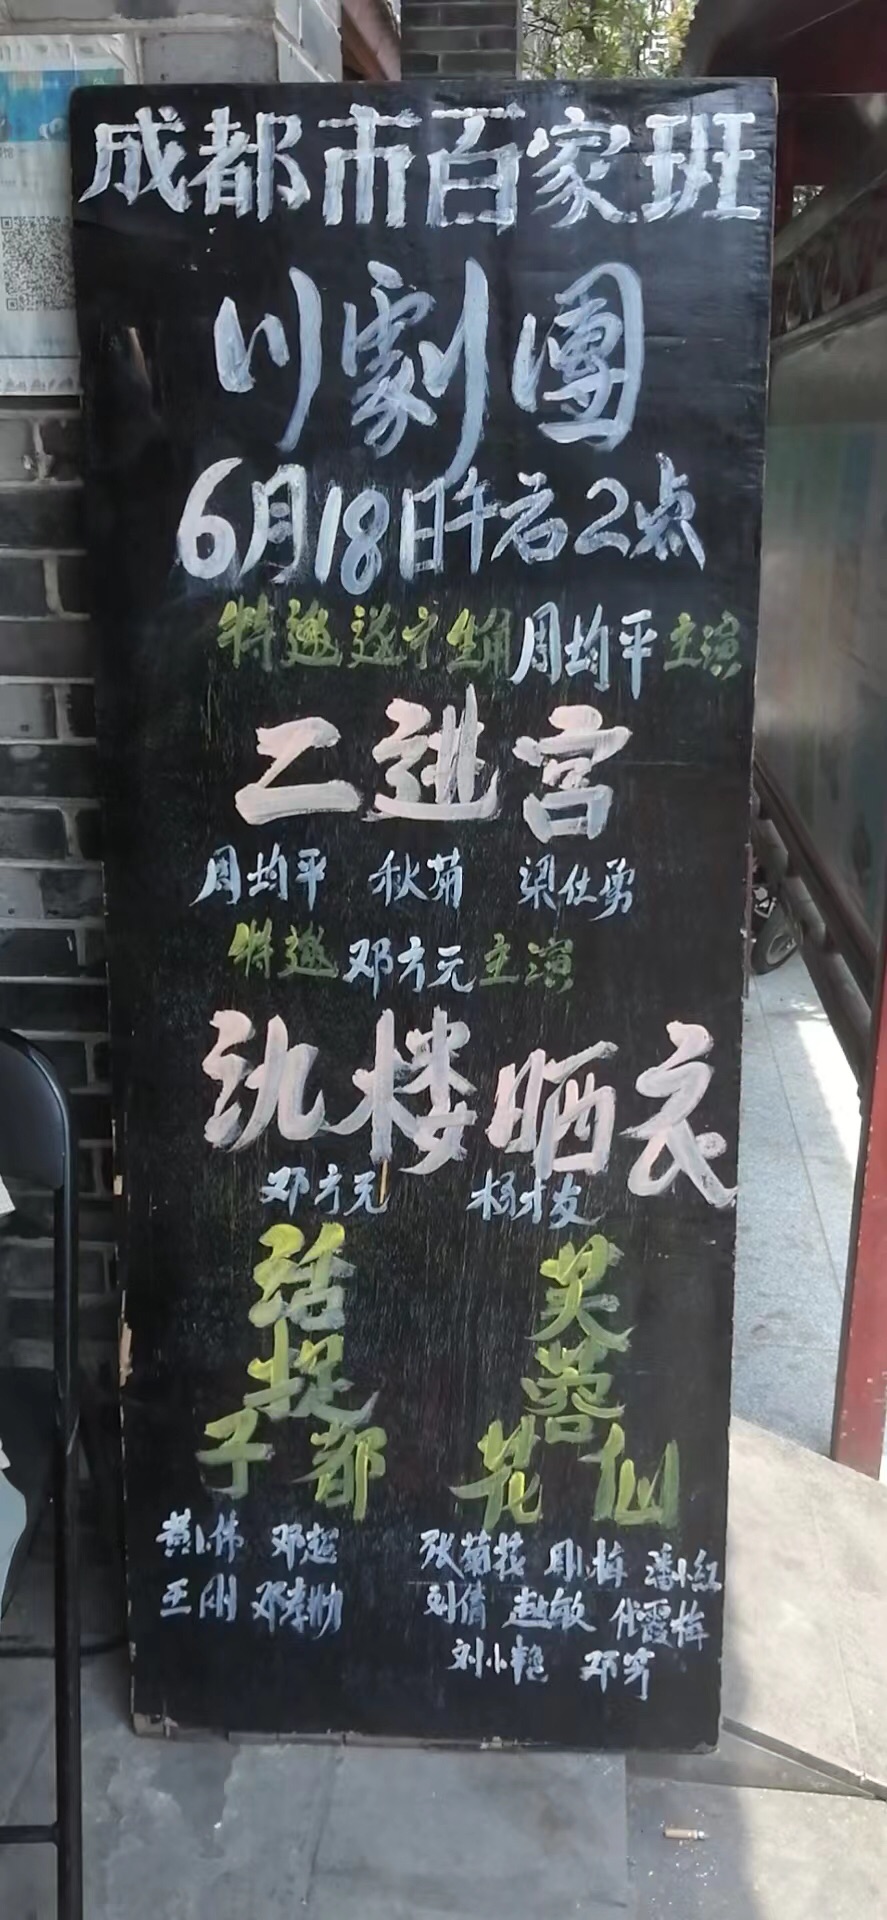 成都市百家班
川劇團
6月18日午后2点
特邀遂宁生角周均平主演
二进宫
周均平 秋菊 梁仕勇
特邀邓方元主演
氿楼晒衣
邓方元 杨才友
活捉子都
黄小伟 邓超
王刚 邓孝勋
芙蓉花仙
张菊花 周小梅 潘小红
刘倩 赵敏 代霞梅
刘小艳